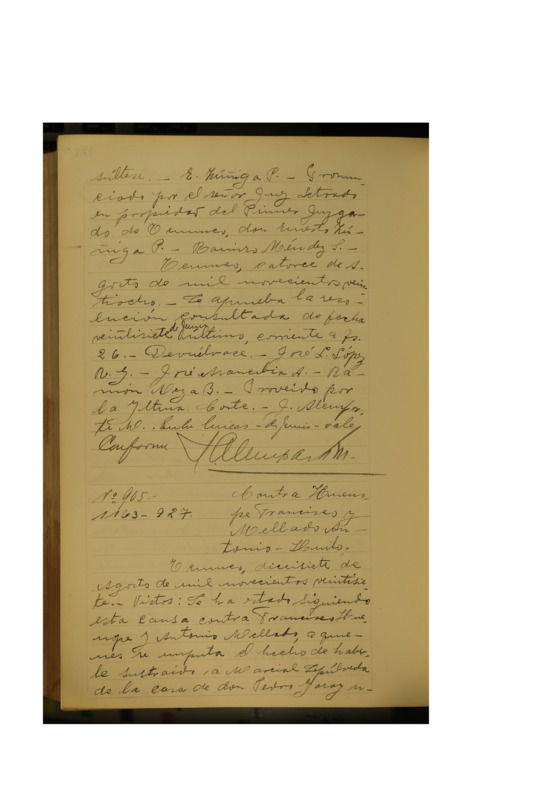 súltese. — E. Zúñiga P. — Pronun-
ciado por el señor Juez Letrado
en propiedad del Primer Juzga-
do de Temuco, don Ernesto Zú-
ñiga P. — Ramiro Méndez S. —
Temuco, catorce de A-
gosto de mil novecientos vein
tiocho. — Se aprueba la reso-
lución consultada de fecha
de Junio
veintisiete último, corriente a fs.
26. — Devuélvase. — José L. López
José A. — Ra-
món Meza B. — Proveido por
la Iltma. Corte. — J. Alempar-
te M. Entre lineas — de Junio — vale
Conforme
Nº 965.-
Contra
927.
pe Francisco y
Mellado An-
tonio — Hurto.
Temuco, diecisiete de
Agosto de mil novecientos veintisie-
te. — Vistos: Se ha estado siguiendo
esta causa contra Francisco
y Antonio Mellado, a quie-
nes se imputa el hecho de haber-
le sustraído a Marcial Sepúlveda
de la casa de don Pedro